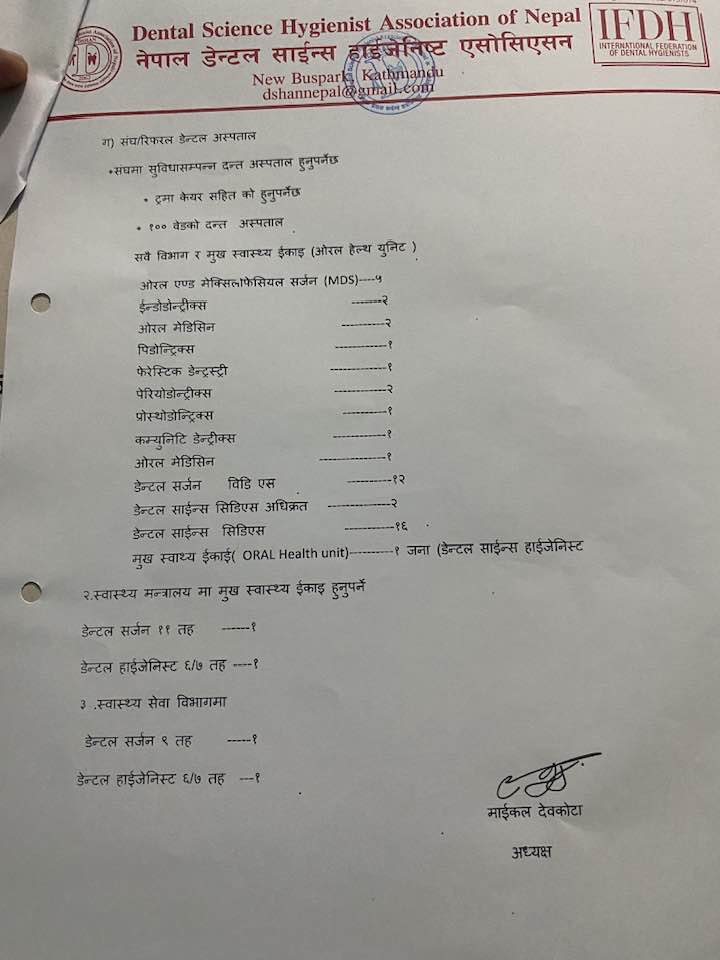 Dental Science Hygienist Association of Nepal
नेपाल डेन्टल साईन्स हाईजेनिष्ट एसोसिएसन
New Buspark, Kathmandu
dshannepal@gmail.com
IFDH
INTERNATIONAL FEDERATION
OF DENTAL HYGIENISTS
ग) संघ/रिफरल डेन्टल अस्पताल
•संघमा सुविधासम्पन्न दन्त अस्पताल हुनुपर्नेछ
• ट्रमा केयर सहित को हुनुपर्नेछ
• १०० वेडको दन्त अस्पताल
सवै विभाग र मुख स्वास्थ्य ईकाइ (ओरल हेल्थ युनिट )
ओरल एण्ड मेक्सिलोफेसियल सर्जन (MDS)----५
ईन्डोडोन्ट्रीक्स -------२
ओरल मेडिसिन ----------२
पिडोन्ट्रिक्स ------------१
फेरेस्टिक डेन्ट्रस्ट्री -------------१
पेरियोडोन्ट्रीक्स ------------२
प्रोस्थोडोन्ट्रिक्स ----------१
कम्युनिटि डेन्ट्रीक्स ------------१
ओरल मेडिसिन ---------------१
डेन्टल सर्जन विडि एस ----------१२
डेन्टल साईन्स सिडिएस अधिक्रत --------------२
डेन्टल साईन्स सिडिएस -----------१६
मुख स्वाथ्य ईकाई( ORAL Health unit)----------१ जना (डेन्टल साईन्स हाईजेनिस्ट
२.स्वास्थ्य मन्त्रालय मा मुख स्वास्थ्य ईकाइ हुनुपर्ने
डेन्टल सर्जन ११ तह ------१
डेन्टल हाईजेनिस्ट ६/७ तह ----१
३ .स्वास्थ्य सेवा विभागमा
डेन्टल सर्जन ९ तह -----१
डेन्टल हाईजेनिस्ट ६/७ तह ---१
माईकल देवकोटा
अध्यक्ष